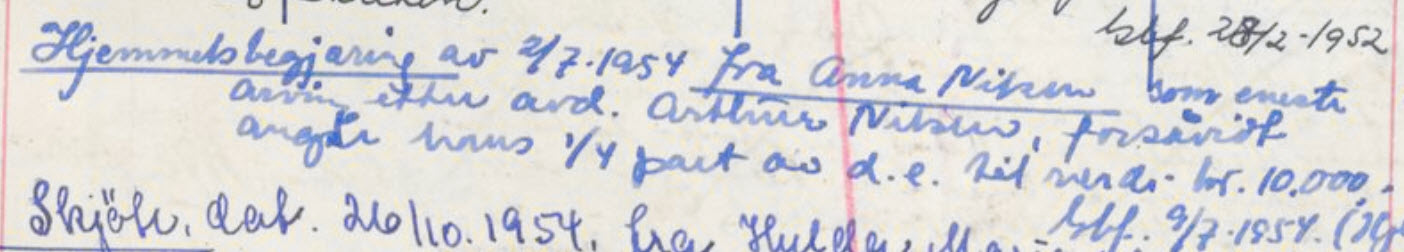 tbf. 28/2-1952
Hjemmelsbegjæring av 2/7.1954 fra Anna Nilsen som eneste
arving etter avd. Arthur Nilsen, forsåvidt
angår hans 1/4 part av d.e. til verdi kr. 10.000,-
tbf. 9/7-1954.
Skjöte, dat. 26/10.1954, fra Hulda